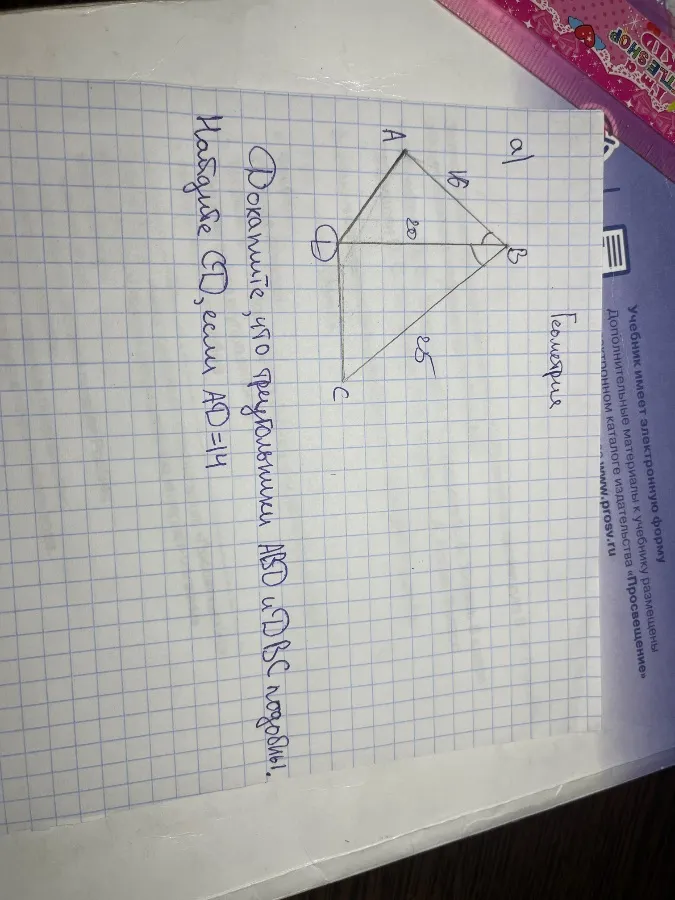 Геометрия
а)
B
16
20
25
A
D
C
Докажите, что треугольники ABD и DBC подобны.
Найдите CD, если AD=14
Учебник имеет электронную форму
Дополнительные материалы к учебнику размещены
электронном каталоге издательства «Просвещение»
www.prosv.ru
TTLESHOP
KID